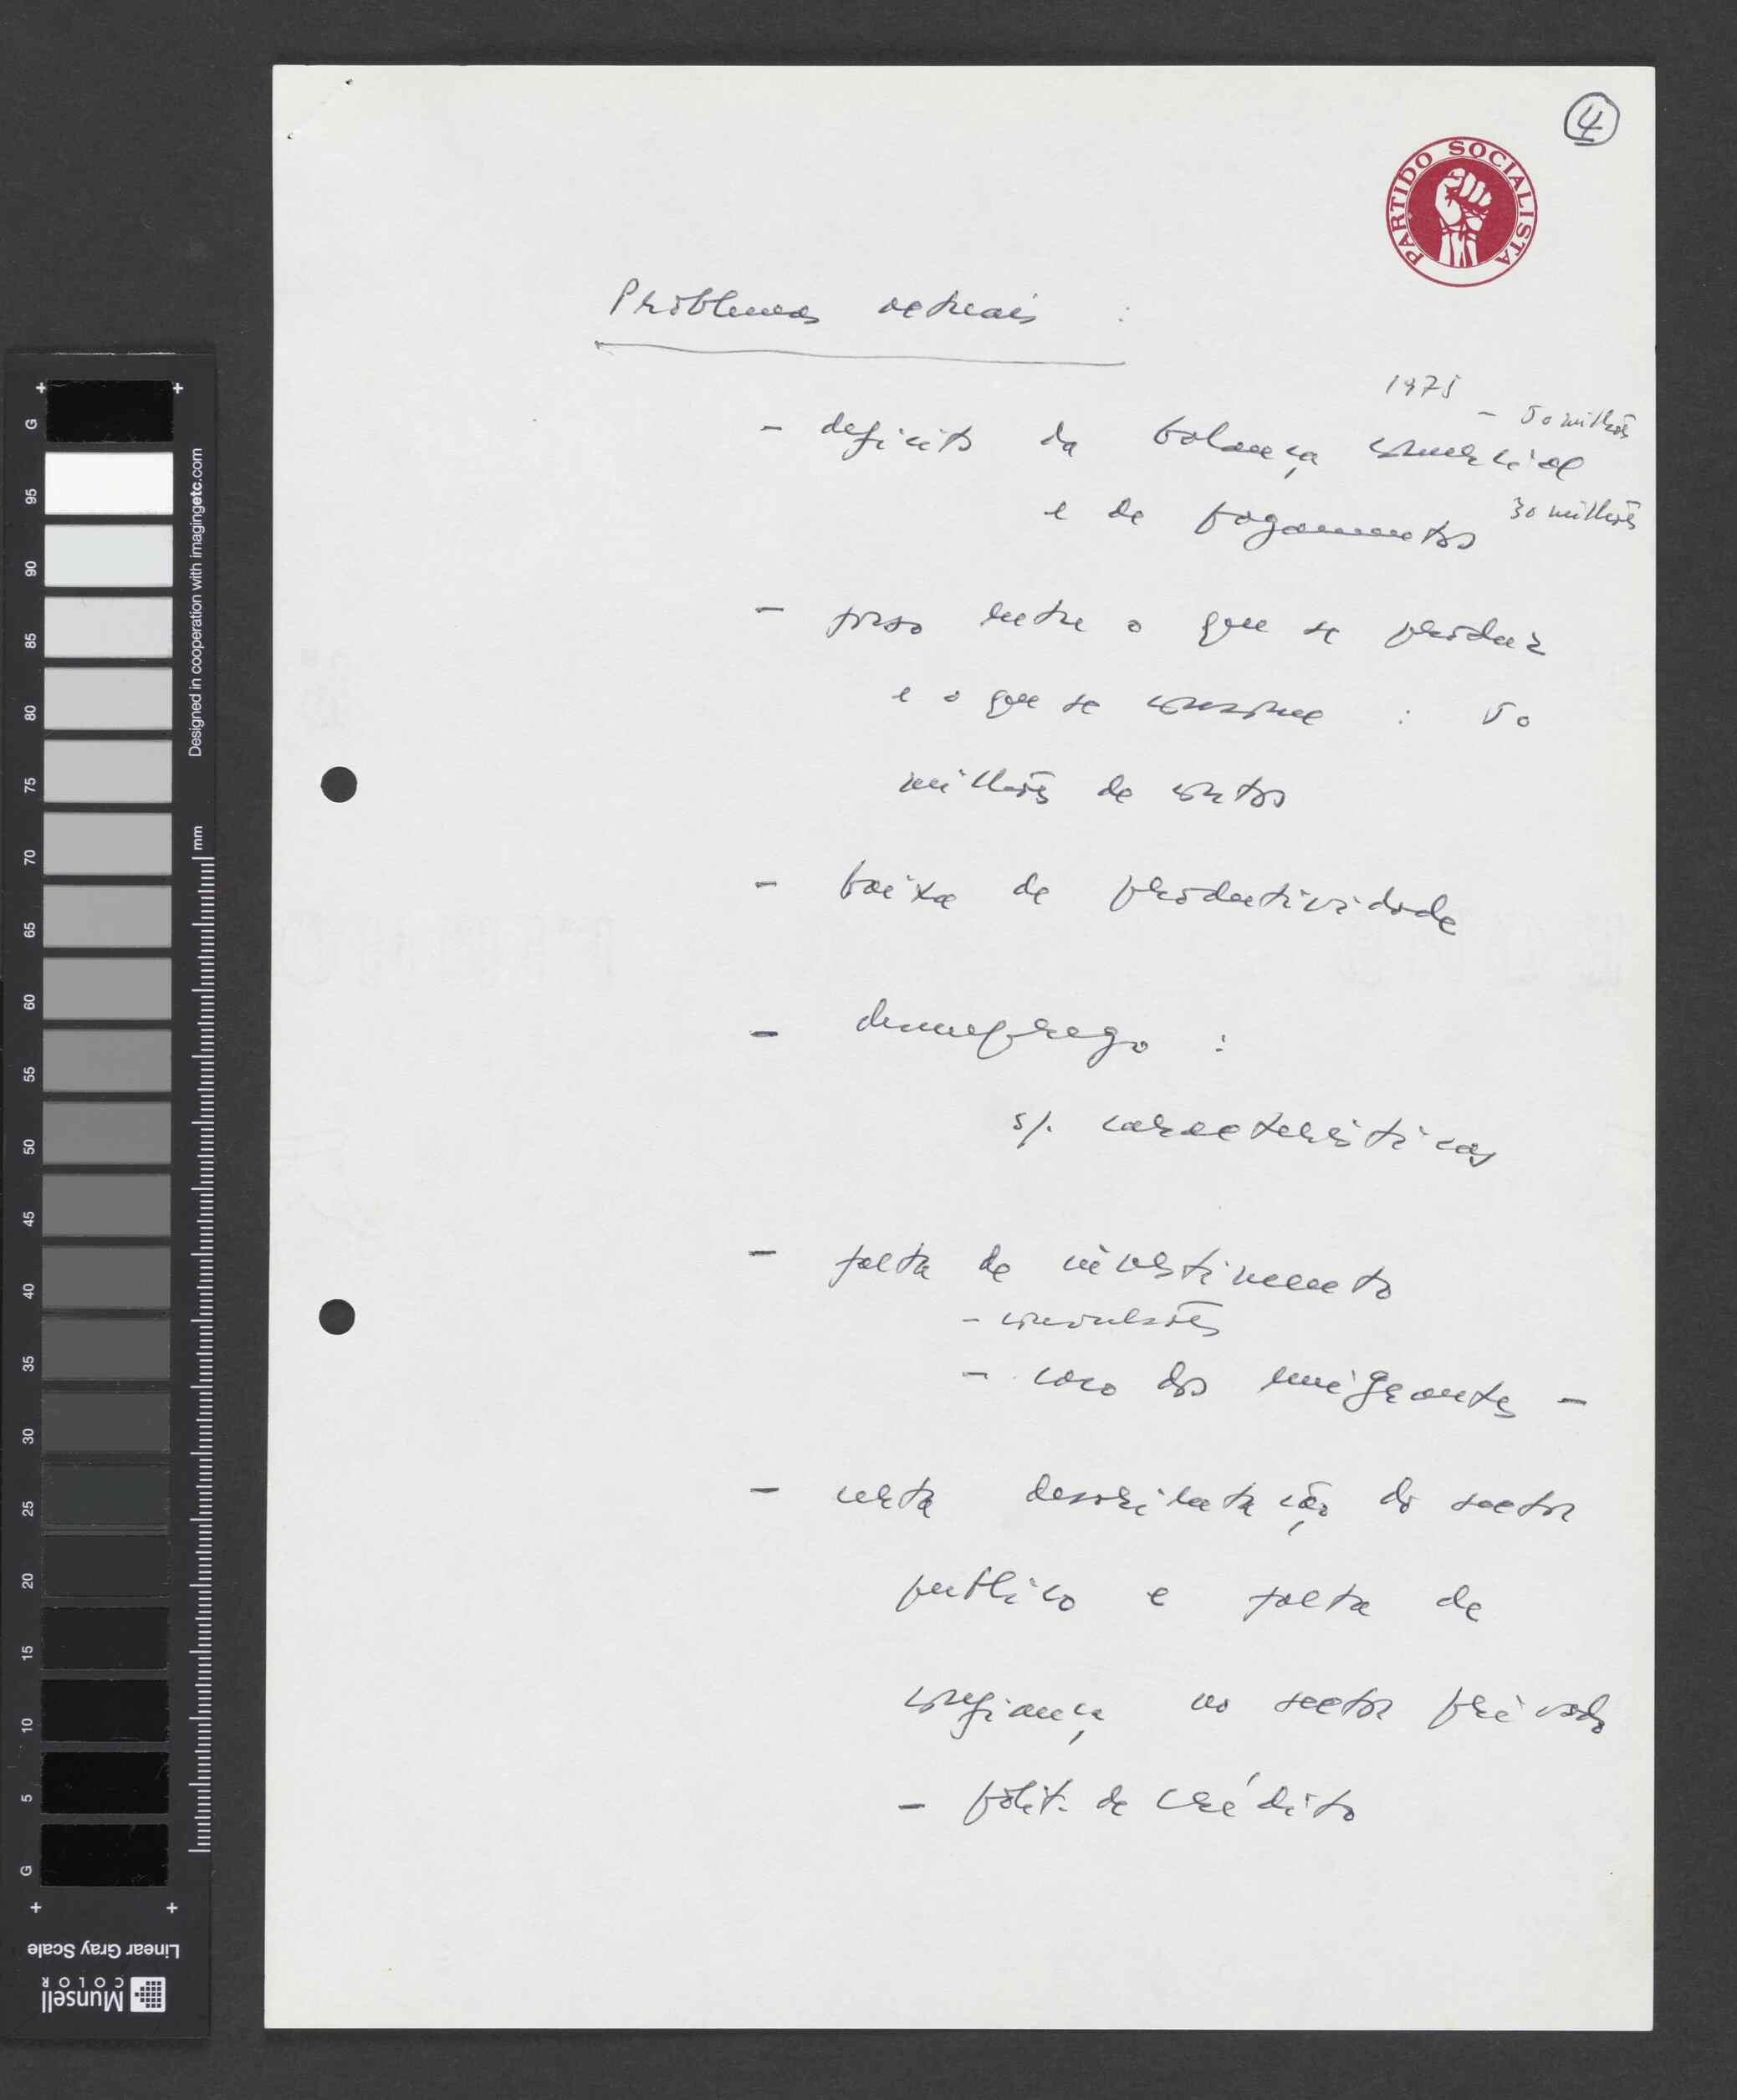 4
PARTIDO SOCIALISTA
Problemas actuais :
1975 - 50 milhões
- deficits da balança comercial
e de pagamentos 30 milhões
- fosso entre o que se produz
e o que se consome : 50
milhões de contos
- baixa de produtividade
- desemprego :
s/. características
- falta de investimento
- convulsões
- caso dos emigrantes -
- certa desorientação do sector
publico e falta de
confiança no sector privado
- polit. de crédito
G
95
90
85
80
75
70
65
60
55
50
45
40
35
30
25
20
15
10
5
G
Designed in cooperation with imagingetc.com
mm
Linear Gray Scale
Munsell
COLOR